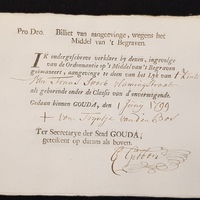 Pro Deo. Billet van aangevinge, wegens het
Middel van 't Begraven.
IK ondergeschreve verklare by dezen, ingevolge
van de Ordonnantie op 't Middel van 't Begraven
geëmaneert, aangevinge te doen van het Lyk van 't Kind
van
als gehorende onder de Classis van d'onvermogende.
Gedaan binnen GOUDA, den 1 Juny 1799
+ van
Ter Secretarye der Stad GOUDA,
getekent op datum als boven.